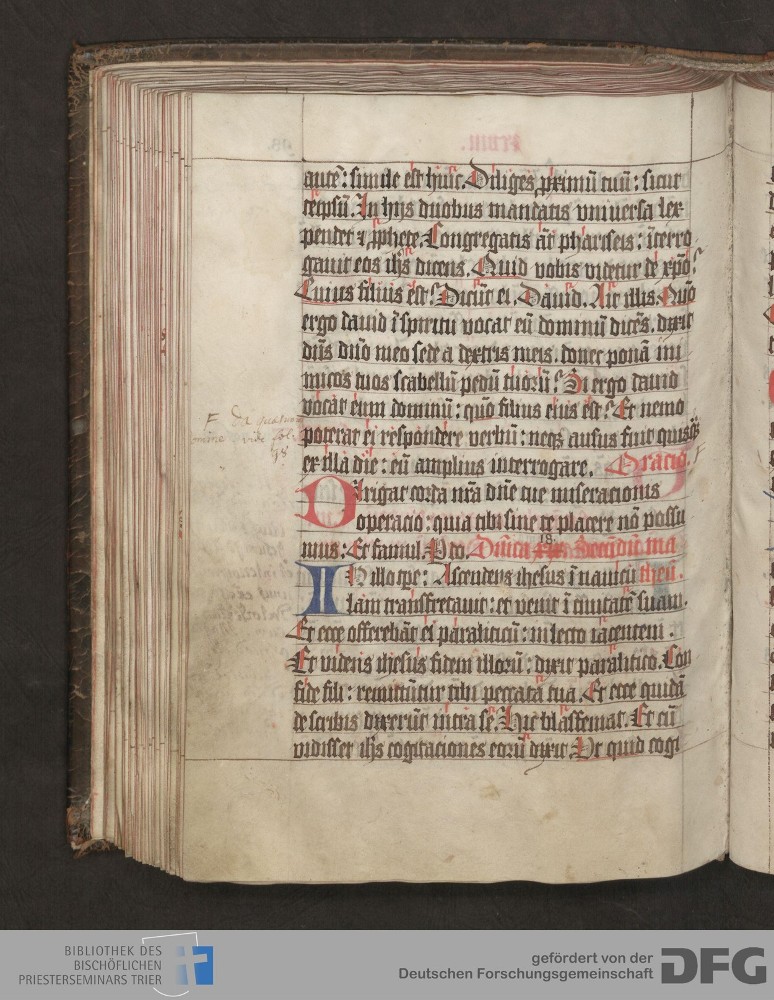 autē: simile est huic. Diliges p̱ximū tuū: sicut
teipsū. In hijs duobus mandatis vniuersa lex
pendet ⁊ p̱phete. Congregatis aūt phariseis: īterro
gauit eos ihs̄ dicens. Quid vobis videtur de xp̄o?
Cuius filius est? Dicūt ei. Dauid. Ait illis. Quō
ergo dauid ī spiritu vocat eū dominū dicēs. dixit
dūs dūo meo sede a dextris meis. donec ponā ini
micos tuos scabellū pedū tuorū? Si ergo dauid
vocat eum dominū: quō filius eius est? Et nemo
poterat ei respondere verbū: neqꝫ ausus fuit quisqꝫ
ex illa die: eū amplius interrogare. Oracio.
Dirigat corda nr̄a dūe tue miseracionis
operacio: quia tibi sine te placere nō possu
mus: Et famul. Pro. Dūica 18. Secūdū ma
IN illo tpe: Ascendens ihesus ī nauicū theū.
lam transfretauit: et venit ī ciuitatē suam.
Et ecce offerebāt ei paraliticū: in lecto iacentem.
Et videns ihesus fidem illorū: dixit paralitico. Con
fide fili: remittūtur tibi peccata tua. Et ecce quidā
de scribis dixerūt intra se. Hic blasfemat. Et cū
vidisset ihs̄ cogitaciones eorū dixit. Vt quid cogi
vide fol.
98
BIBLIOTHEK DES
BISCHÖFLICHEN
PRIESTERSEMINARS TRIER
gefördert von der
Deutschen Forschungsgemeinschaft DFG